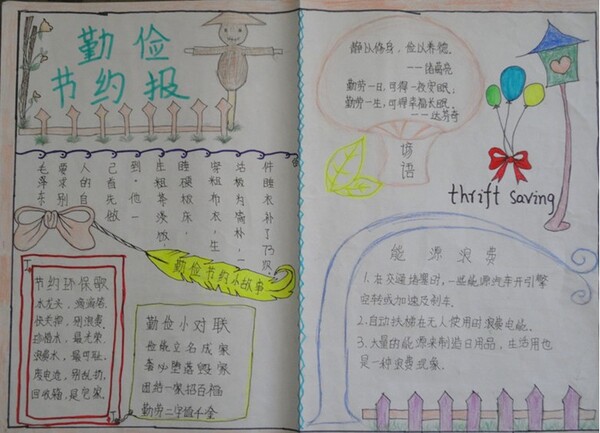 勤俭
节约报
毛泽东
要求别
人的自
己首先做
到，他一
生粗茶淡饭，
睡硬板床，
穿粗布衣，生
活极为简朴，一
件睡衣补了73次
勤俭节约小故事
节约环保歌
水龙头，滴滴答，
快关掉，别浪费。
珍惜水，最光荣，
浪费水，最可耻。
废电池，别乱扔，
回收箱，是它家。
勤俭小对联
俭能立名成家
奢必堕落毁家
团结一家招百福
勤劳二字值千金
静以修身，俭以养德。
——诸葛亮
勤劳一日，可得一夜安眠；
勤劳一生，可得幸福长眠。
——达芬奇
谚语
thrift saving
能源浪费
1.在交通堵塞时，一些能源汽车开引擎
空转或加速及刹车。
2.自动扶梯在无人使用时浪费电能。
3.大量的能源来制造日用品，生活用也
是一种浪费现象。